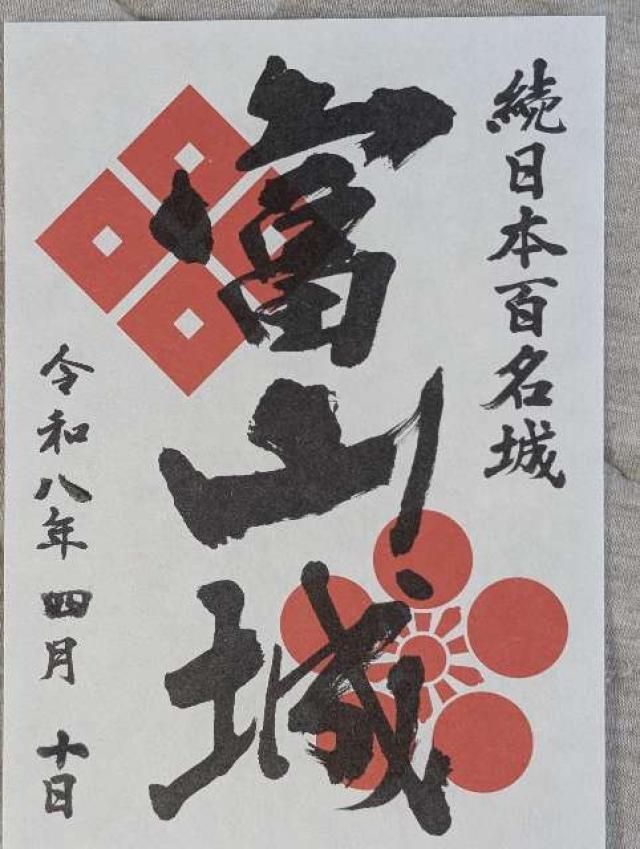 続日本百名城
富山城
令和八年四月十日